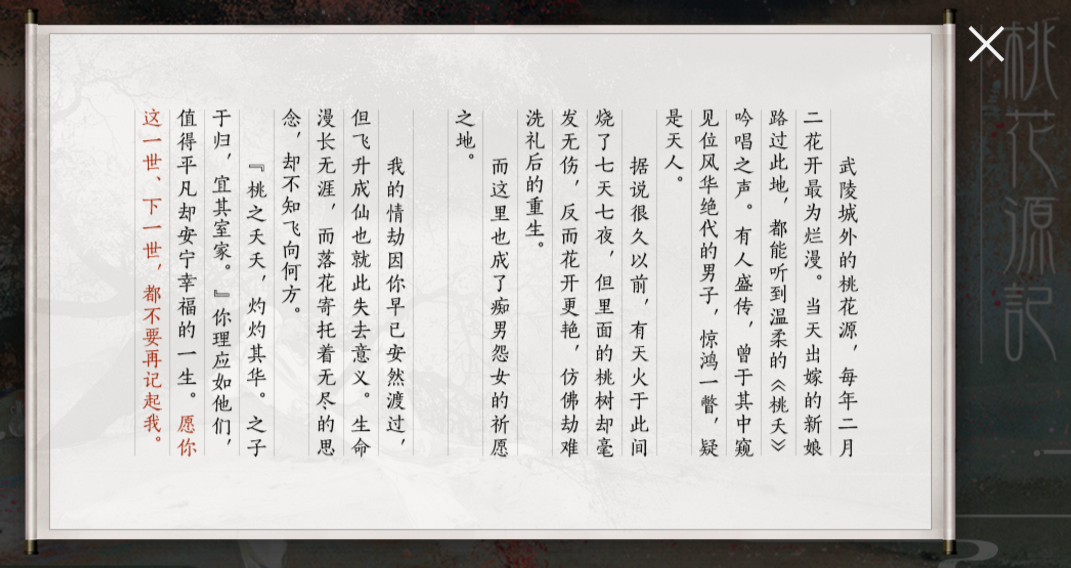 桃花源記
武陵城外的桃花源，每年二月
二花开最为烂漫。当天出嫁的新娘
路过此地，都能听到温柔的《桃夭》
吟唱之声。有人盛传，曾于其中窥
见位风华绝代的男子，惊鸿一瞥，疑
是天人。
据说很久以前，有天火于此间
烧了七天七夜，但里面的桃树却毫
发无伤，反而花开更艳，仿佛劫难
洗礼后的重生。
而这里也成了痴男怨女的祈愿
之地。
我的情劫因你早已安然渡过，
但飞升成仙也就此失去意义。生命
漫长无涯，而落花寄托着无尽的思
念，却不知飞向何方。
『桃之夭夭，灼灼其华。之子
于归，宜其室家。』你理应如他们，
值得平凡却安宁幸福的一生。愿你
这一世、下一世，都不要再记起我。